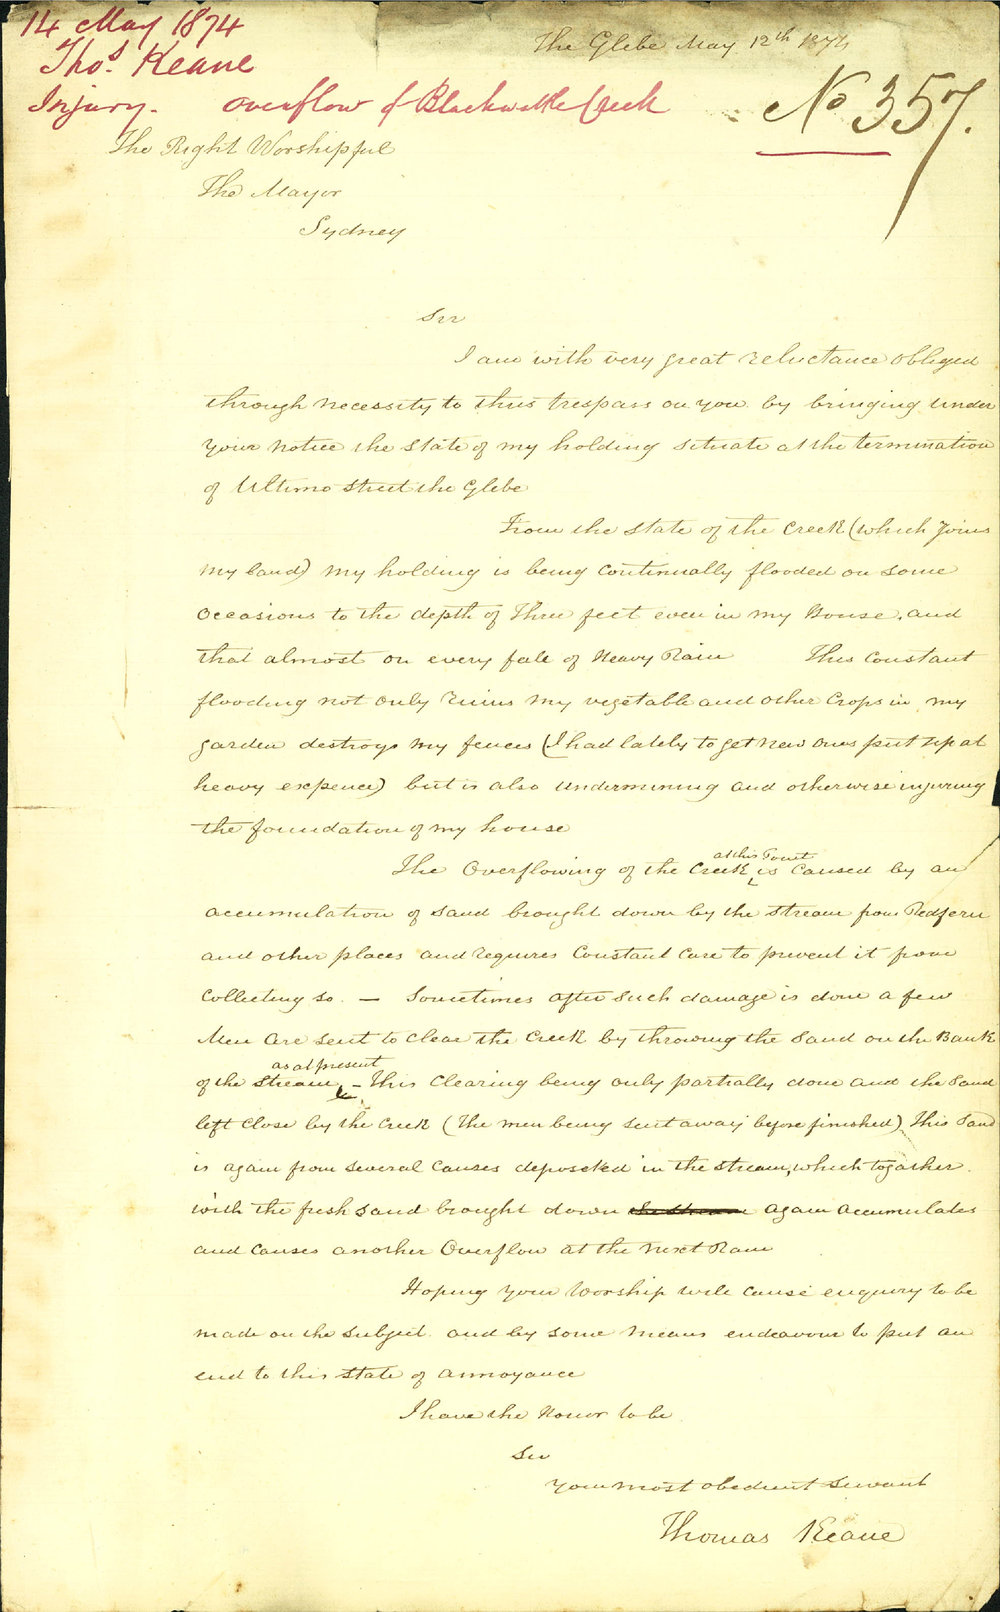 14 May 1874
Thos. Keane
Injury. Overflow of Blackwattle Creek
The Glebe May 12th 1874
No 357.
The Right Worshipful
The Mayor
Sydney
Sir
I am with very great reluctance obliged
through necessity to thus trespass on you by bringing under
your notice the state of my holding situate at the termination
of Ultimo Street the Glebe
From the state of the Creek (which Joins
my land) my holding is being continually flooded on some
occasions to the depth of Three feet even in my House, and
that almost on every fall of Heavy Rain This constant
flooding not only ruins my vegetable and other Crops in my
garden destroys my fences (I had lately to get new ones put up at
heavy expence) but is also undermining and otherwise injuring
the foundation of my house
The Overflowing of the Creek at this Point is caused by an
accumulation of sand brought down by the stream from Redfern
and other places and requires Constant Care to prevent it from
Collecting so. — Sometimes after such damage is done a few
Men are sent to clear the Creek by throwing the Sand on the Bank
of the Stream as at present – This Clearing being only partially done and the Sand
left close by the Creek (the men being sent away before finished) This Sand
is again from several Causes deposeted in the stream, which togather
with the fresh sand brought down the stream again accumulates
and causes another Overflow at the next Rain
Hoping your Worship will cause enquiry to be
made on the subject and by some means endeavour to put an
end to this state of annoyance
I have the Honor to be
Sir
your most obedient Servant
Thomas Keane